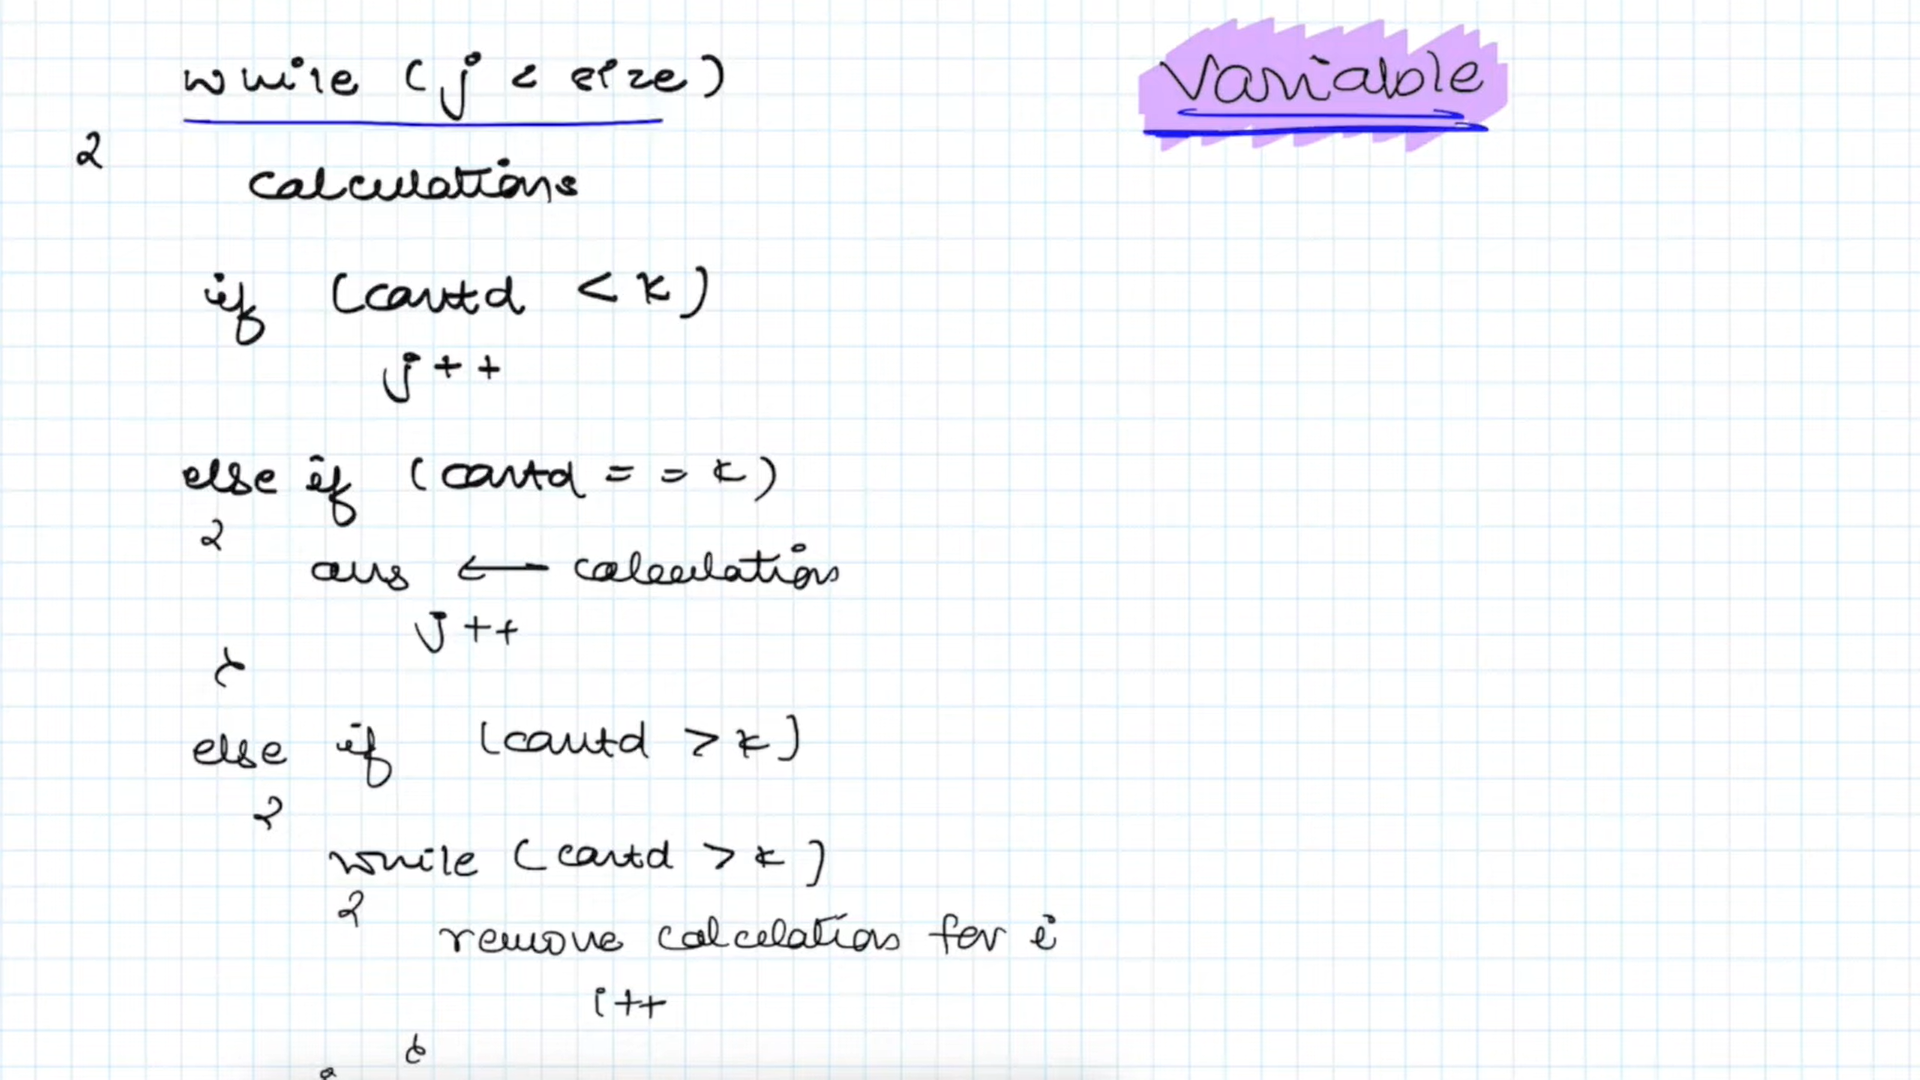 while (j < size)
Variable
{
calculations
if (contd < k)
j++
else if (contd == k)
{
ans ← calculation
j++
}
else if (contd > k)
{
while (contd > k)
{
remove calculations for i
i++
}